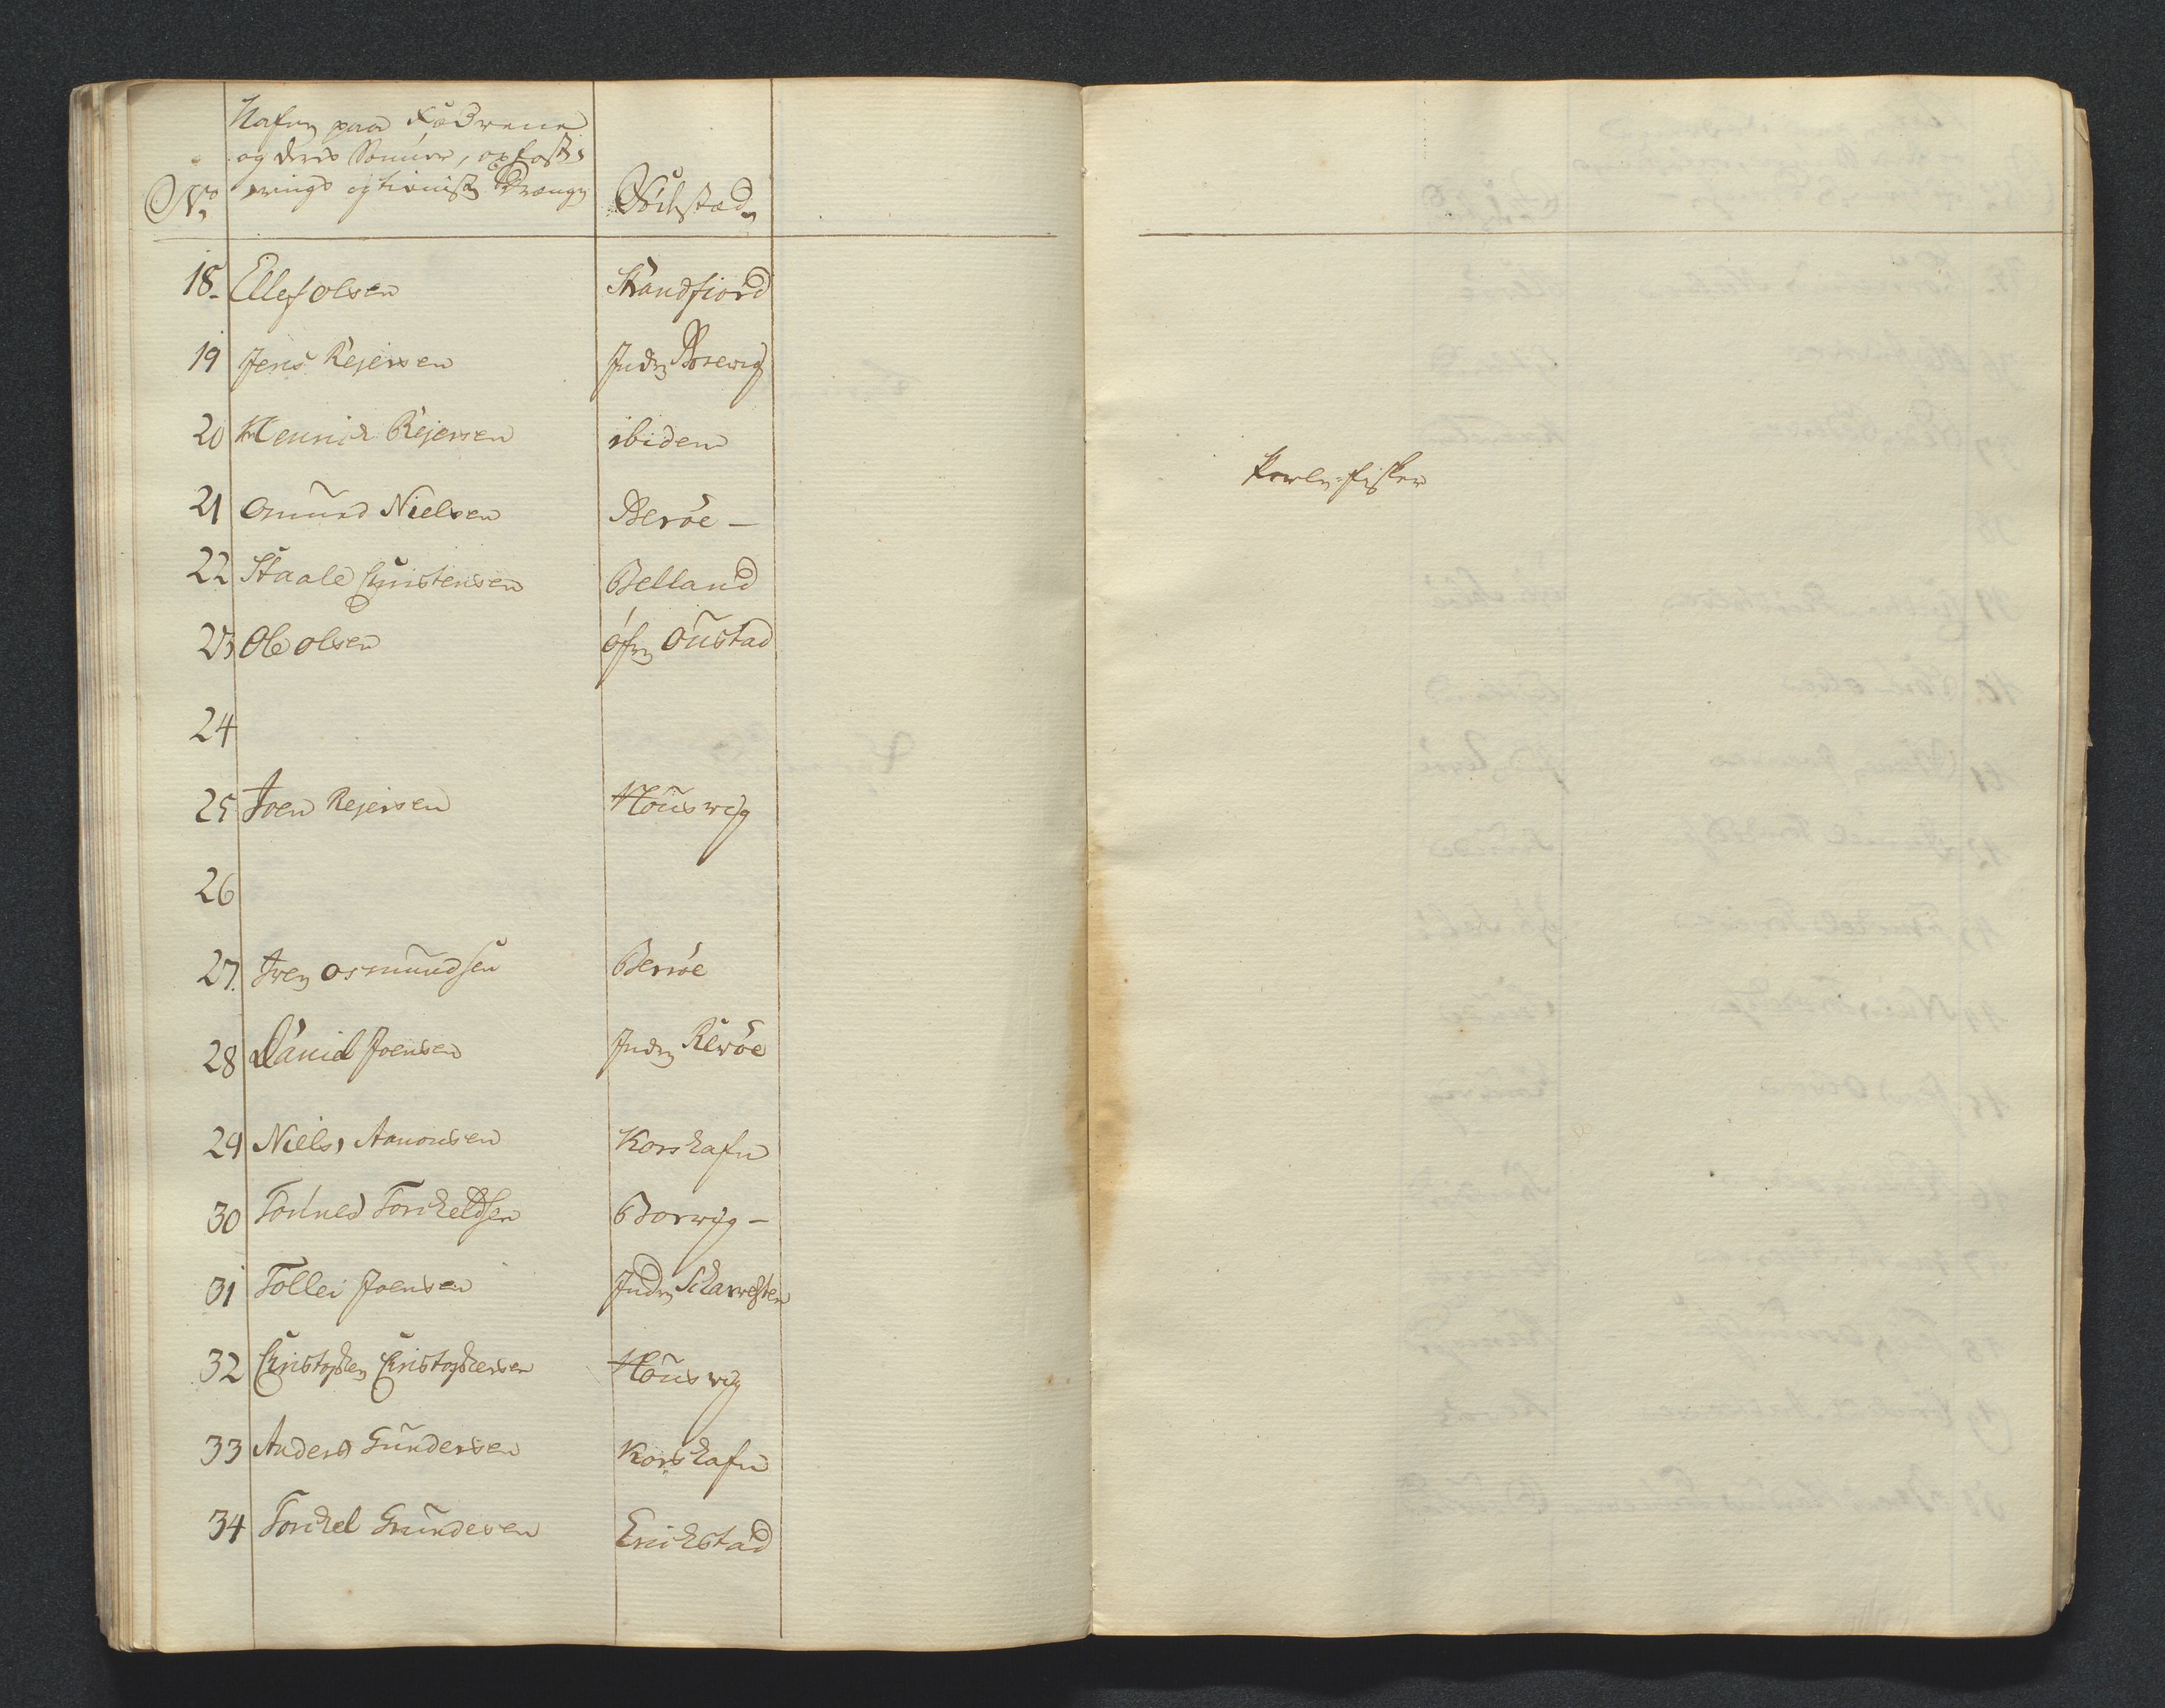 Nafn paa Fædrene
og deris Sönner, opfost-
rings og tienist Drænge
No
Bösted
18. Ellef olsen Strandfiord
19 Jens Rejersen Indr Berewig
20 Hennich Rejersen ibidem
21 Omund Nielsen Beröe -
22 Staale Christensen Belland
23 Ole olsen öfr Oustad
24
25 Joen Rejersen Höuswig
26
27. Iver osmundsen Beröe
28 Daniel Joensen Indr Reröe
29 Niels Aanonsen Korshafn
30 Torkel Torkeldsen Borwig -
31 Tollei Joensen Indr Skarwesten
32 Christopher Christophersen Höuswig
33 Anders Gundersen Korshafn
34 Torkel Gundersen Erichstad
Perle-fisker